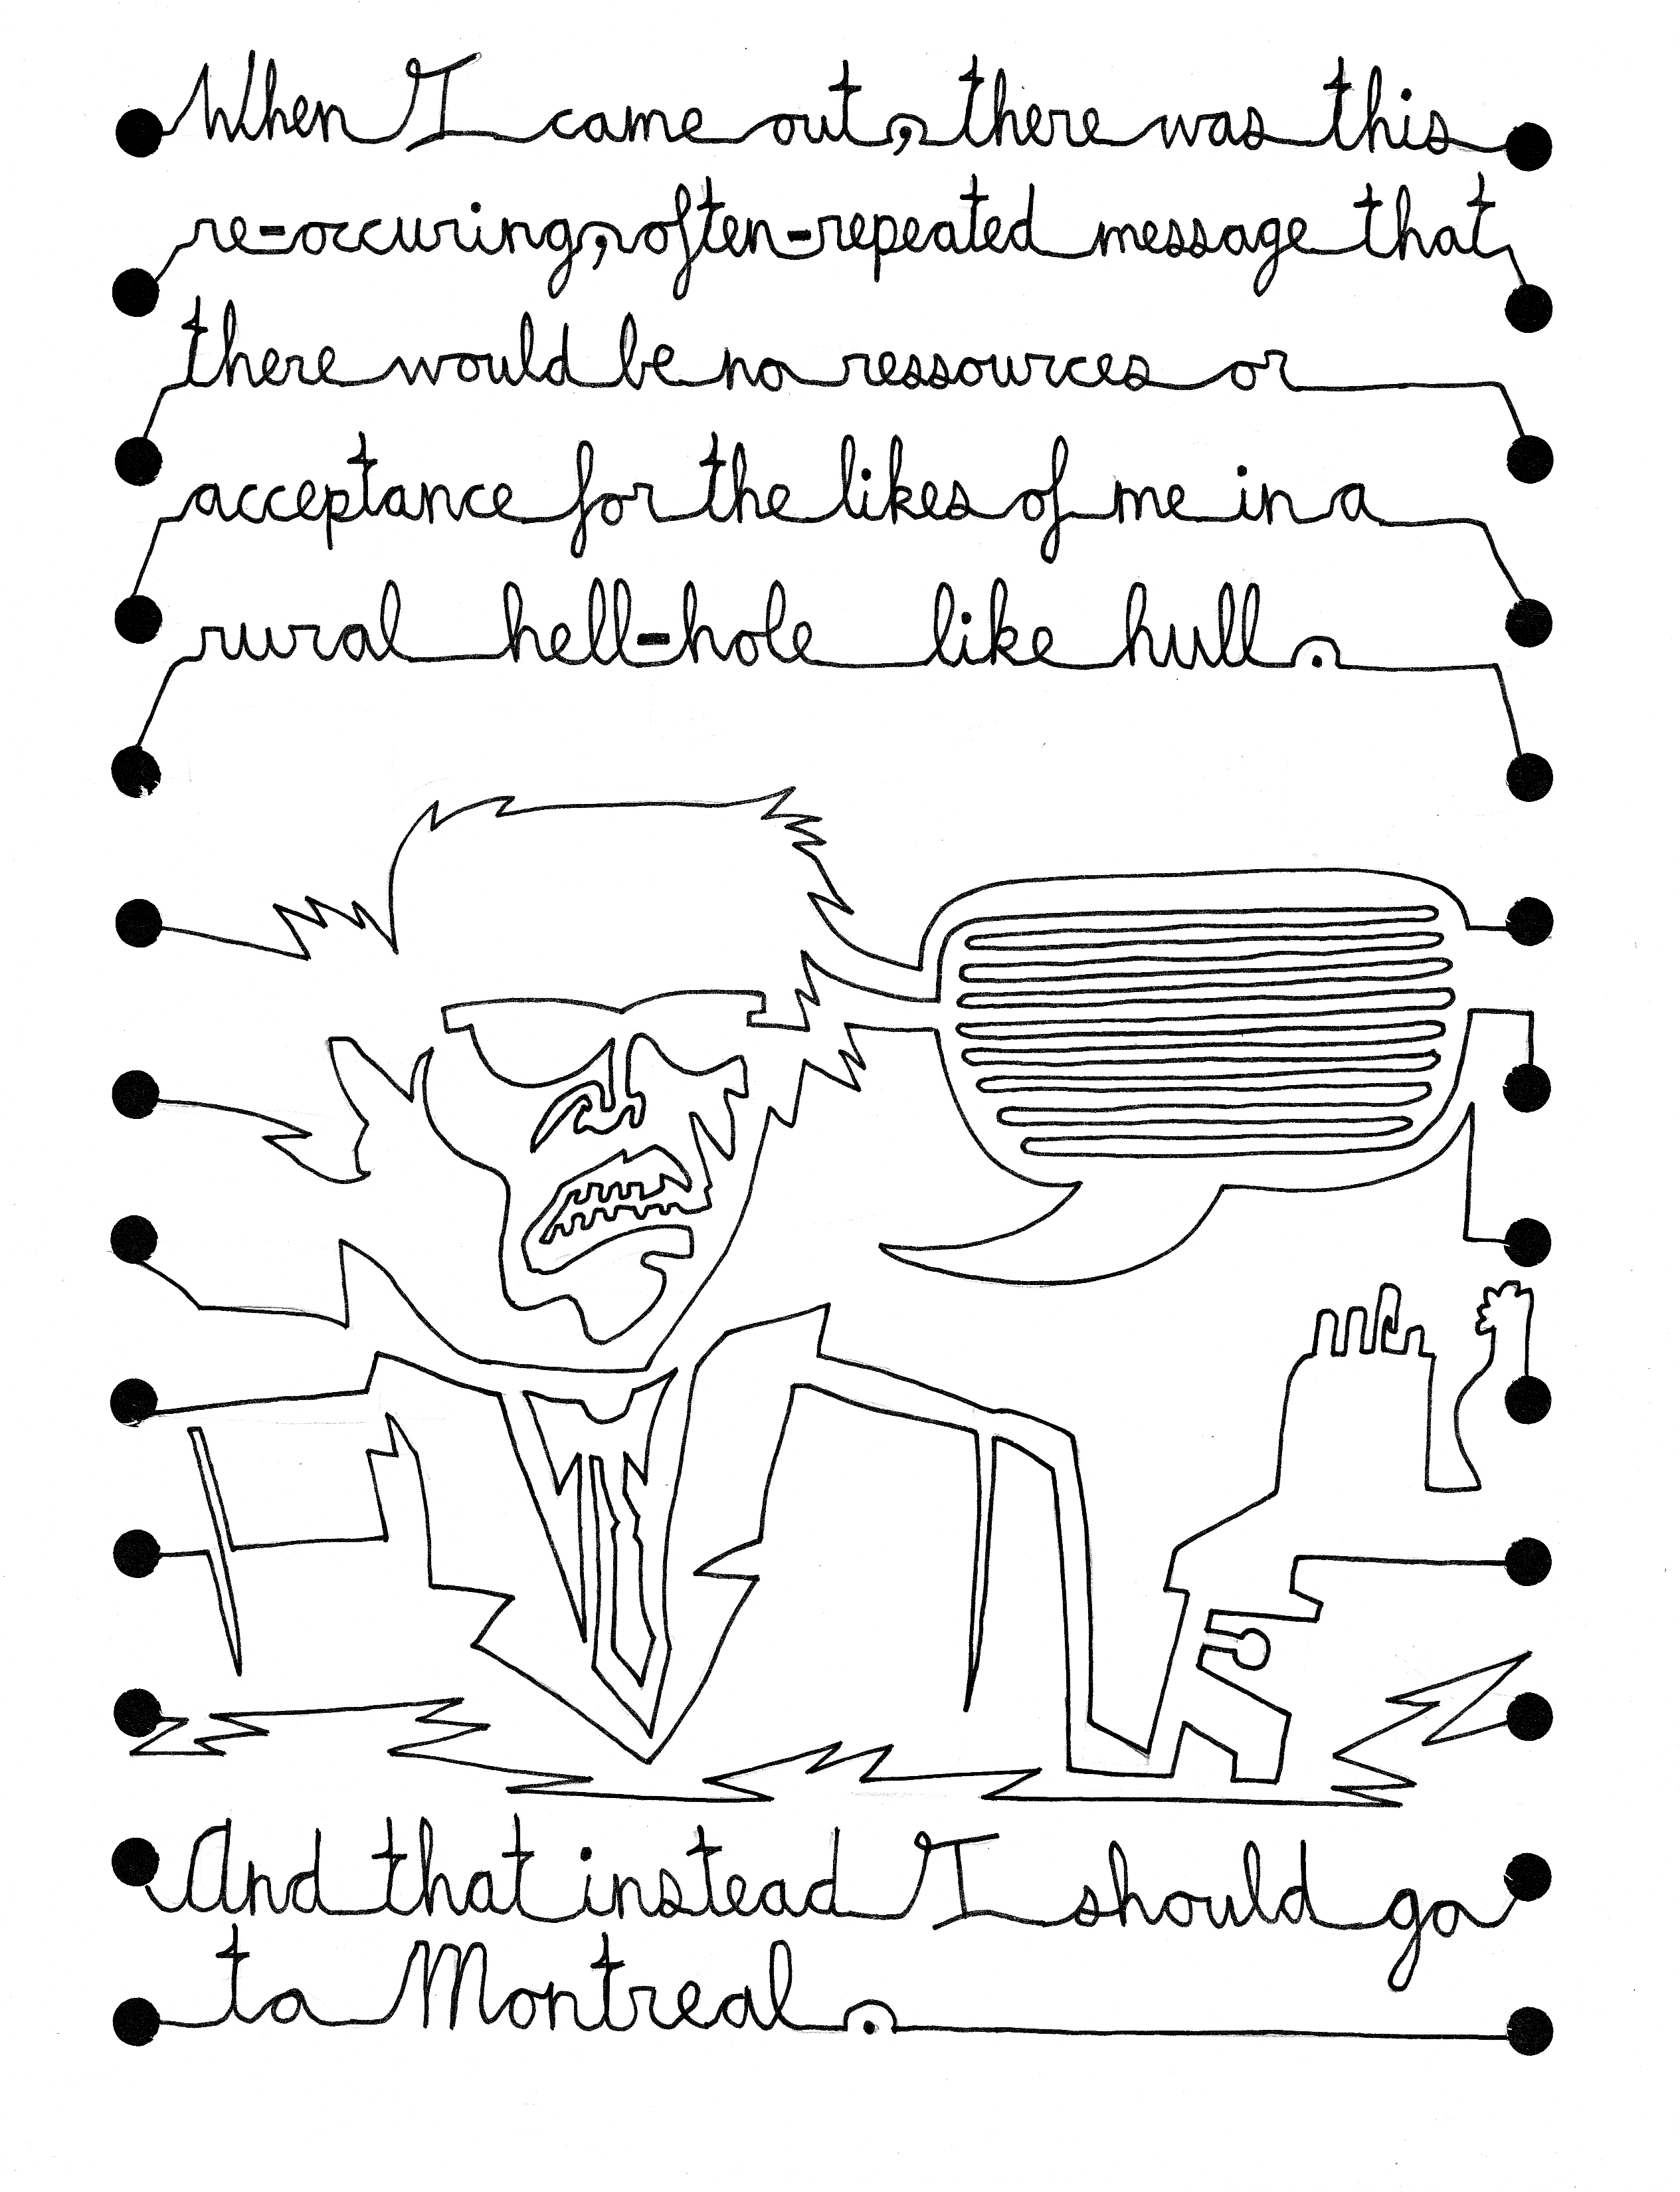 When I came out, there was this
re-occuring, often-repeated message that
there would be no ressources or
acceptance for the likes of me in a
rural hell-hole like hull.
And that instead I should go
to Montreal.